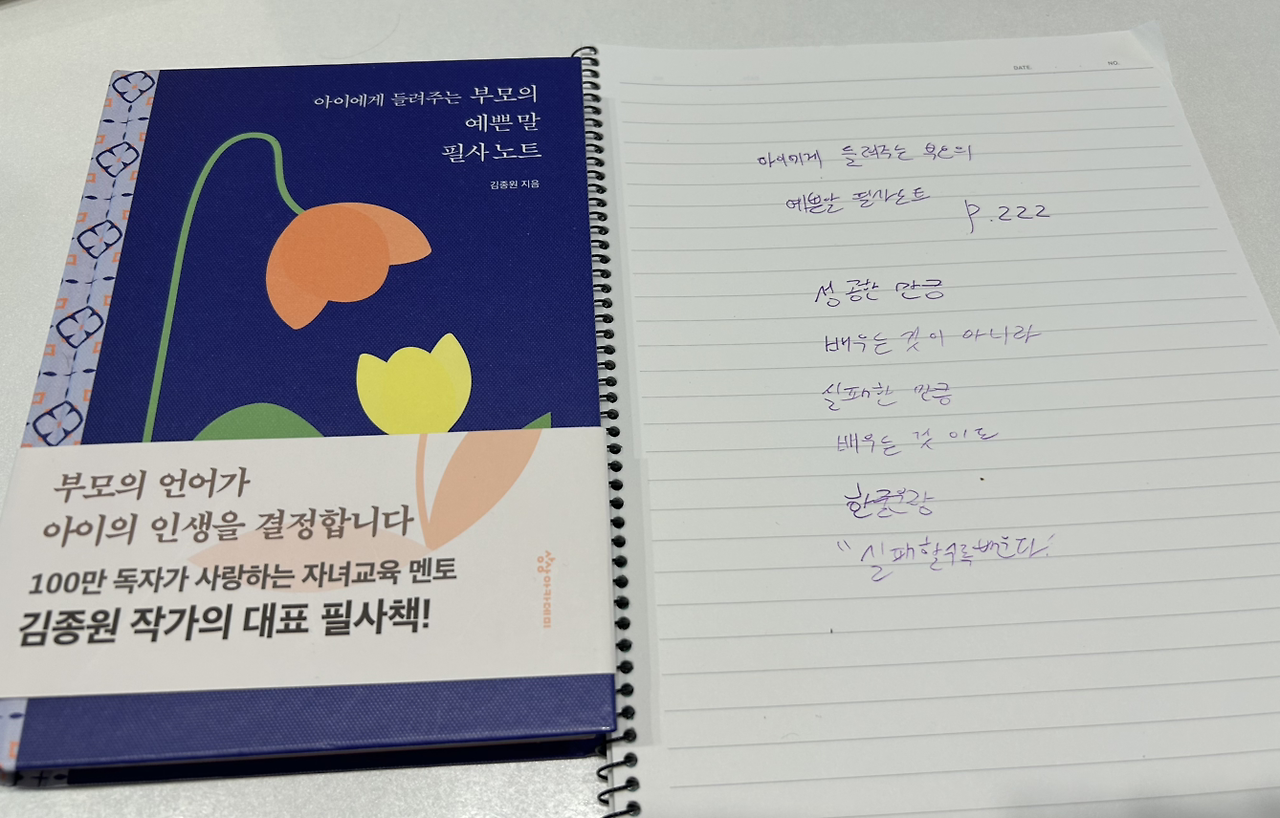 아이에게 들려주는 부모의
예쁜 말
필사 노트
김종원 지음
부모의 언어가
아이의 인생을 결정합니다
100만 독자가 사랑하는 자녀교육 멘토
김종원 작가의 대표 필사책!
상상아카데미
DATE.
NO.
아이에게 들려주는 부모의
예쁜말 필사노트
p.222
성공한 만큼
배우는 것이 아니라
실패한 만큼
배우는 것 이다
"실패할수록 배운다"